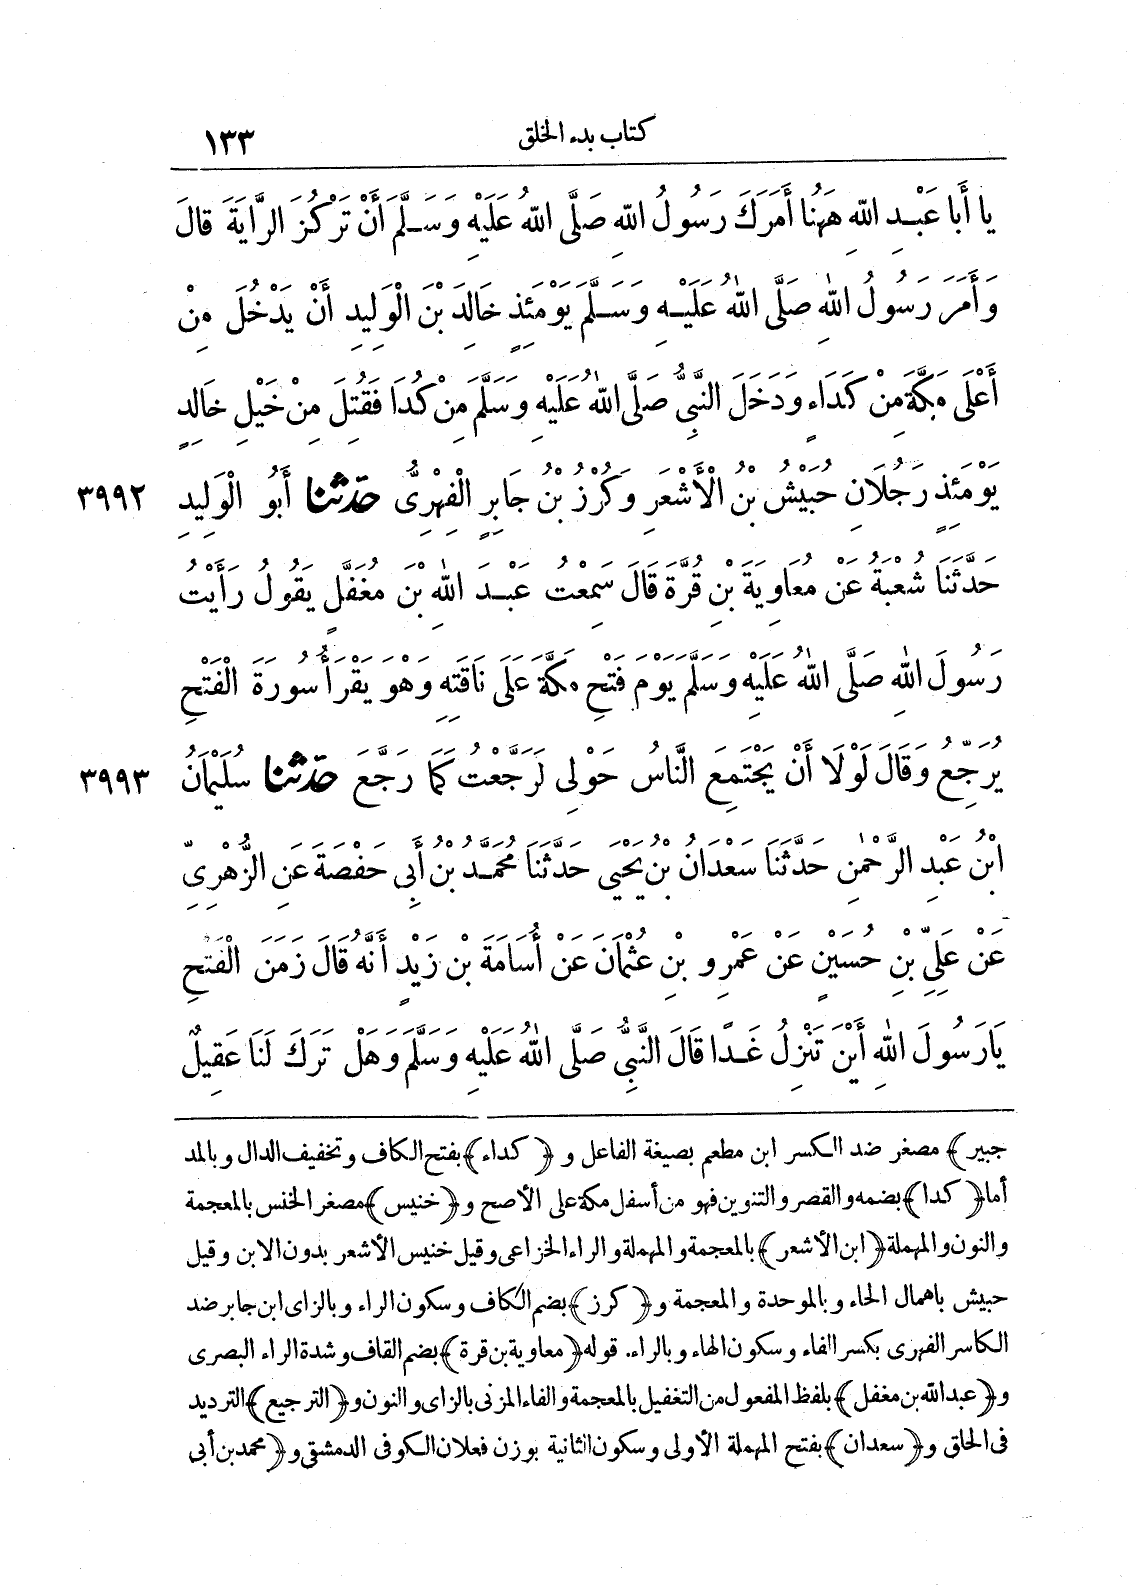 كتاب بدء الخلق ١٣٣
يا أَبا عَبْدِ اللهِ هٰهُنَا أَمَرَكَ رَسُولُ اللهِ صَلَّى اللهُ عَلَيْهِ وَسَلَّمَ أَنْ تَرْكُزَ الرَّايَةَ قالَ
وَأَمَرَ رَسُولُ اللهِ صَلَّى اللهُ عَلَيْهِ وَسَلَّمَ يَوْمَئِذٍ خَالِدَ بْنَ الْوَلِيدِ أَنْ يَدْخُلَ مِنْ
أَعْلَى مَكَّةَ مِنْ كَدَاءٍ وَدَخَلَ النَّبِيُّ صَلَّى اللهُ عَلَيْهِ وَسَلَّمَ مِنْ كُدَا فَقُتِلَ مِنْ خَيْلِ خَالِدٍ
يَوْمَئِذٍ رَجُلَانِ حُبَيْشُ بْنُ الْأَشْعَرِ وَكُرْزُ بْنُ جَابِرٍ الْفِهْرِىُّ حدثنا أَبُو الْوَلِيدِ ٣٩٩٢
حَدَّثَنَا شُعْبَةُ عَنْ مُعَاوِيَةَ بْنِ قُرَّةَ قَالَ سَمِعْتُ عَبْدَ اللهِ بْنَ مُغَفَّلٍ يَقُولُ رَأَيْتُ
رَسُولَ اللهِ صَلَّى اللهُ عَلَيْهِ وَسَلَّمَ يَوْمَ فَتْحِ مَكَّةَ عَلَى نَاقَتِهِ وَهْوَ يَقْرَأُ سُورَةَ الْفَتْحِ
يُرَجِّعُ وَقَالَ لَوْلَا أَنْ يَجْتَمِعَ النَّاسُ حَوْلِى لَرَجَّعْتُ كَمَا رَجَّعَ حدثنا سُلَيْمَانُ ٣٩٩٣
ابْنُ عَبْدِ الرَّحْمٰنِ حَدَّثَنَا سَعْدَانُ بْنُ يَحْيَى حَدَّثَنَا مُحَمَّدُ بْنُ أَبِى حَفْصَةَ عَنِ الزُّهْرِىِّ
عَنْ عَلِىِّ بْنِ حُسَيْنٍ عَنْ عَمْرِو بْنِ عُثْمَانَ عَنْ أُسَامَةَ بْنِ زَيْدٍ أَنَّهُ قَالَ زَمَنَ الْفَتْحِ
يَا رَسُولَ اللهِ أَيْنَ تَنْزِلُ غَدًا قَالَ النَّبِيُّ صَلَّى اللهُ عَلَيْهِ وَسَلَّمَ وَهَلْ تَرَكَ لَنَا عَقِيلٌ
جبير﴾ مصغر ضد الكسر ابن مطعم بصيغة الفاعل و ﴿كداء﴾ بفتح الكاف وتخفيف الدال وبالمد
أما ﴿كدا﴾ بضمه والقصر والتنوين فهو من أسفل مكة على الأصح و ﴿خنيس﴾ مصغر الخنس بالمعجمة
والنون والمهملة ﴿ابن الأشعر﴾ بالمعجمة والمهملة والراء الخزاعى وقيل خنيس الأشعر بدون الابن وقيل
حبيش باهمال الحاء وبالموحدة والمعجمة و ﴿كرز﴾ بضم الكاف وسكون الراء وبالزاى ابن جابر ضد
الكاسر الفهرى بكسر الفاء وسكون الهاء وبالراء. قوله ﴿معاوية بن قرة﴾ بضم القاف وشدة الراء البصرى
و ﴿عبد الله بن مغفل﴾ بلفظ المفعول من التغفيل بالمعجمة والفاء المزنى بالزاى والنون و ﴿الترجيع﴾ الترديد
فى الحلق و ﴿سعدان﴾ بفتح المهملة الأولى وسكون الثانية بوزن فعلان الكوفى الدمشقى و ﴿محمد بن أبى